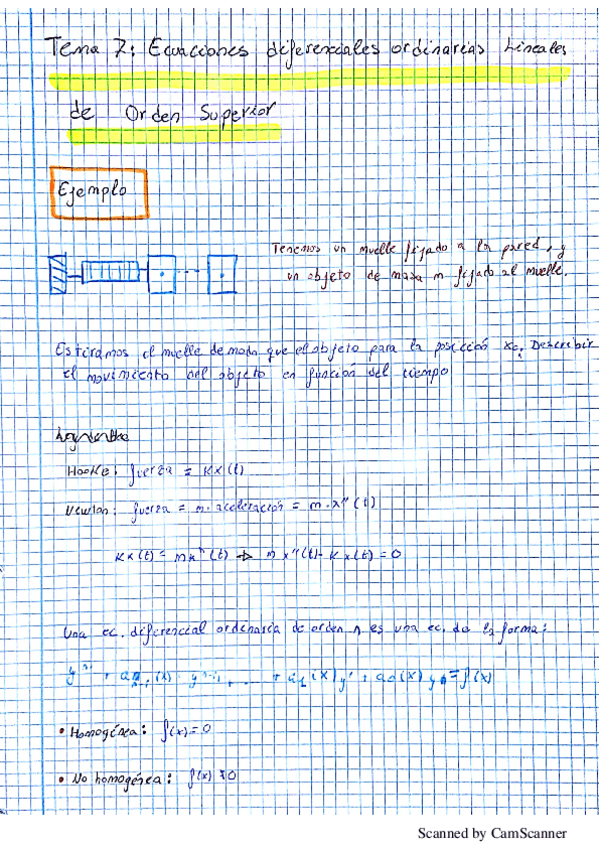 Tema 7: Ecuaciones diferenciales ordinarias Lineales
de Orden Superior
Ejemplo
Tenemos un muelle fijado a la pared, y
un objeto de masa m fijado al muelle.
Estiramos el muelle de modo que el objeto para la posición x₀. Describir
el movimiento del objeto en función del tiempo
Hooke: fuerza = Kx(t)
Newton: fuerza = m·aceleración = m·x''(t)
Kx(t) = mx''(t) → m x''(t) - Kx(t) = 0
Una ec. diferencial ordinaria de orden n es una ec. de la forma:
+ a₁(x)y' + a₀(x)y = f(x)
• Homogénea: f(x) = 0
• No homogénea: f(x) ≠ 0
Scanned by CamScanner